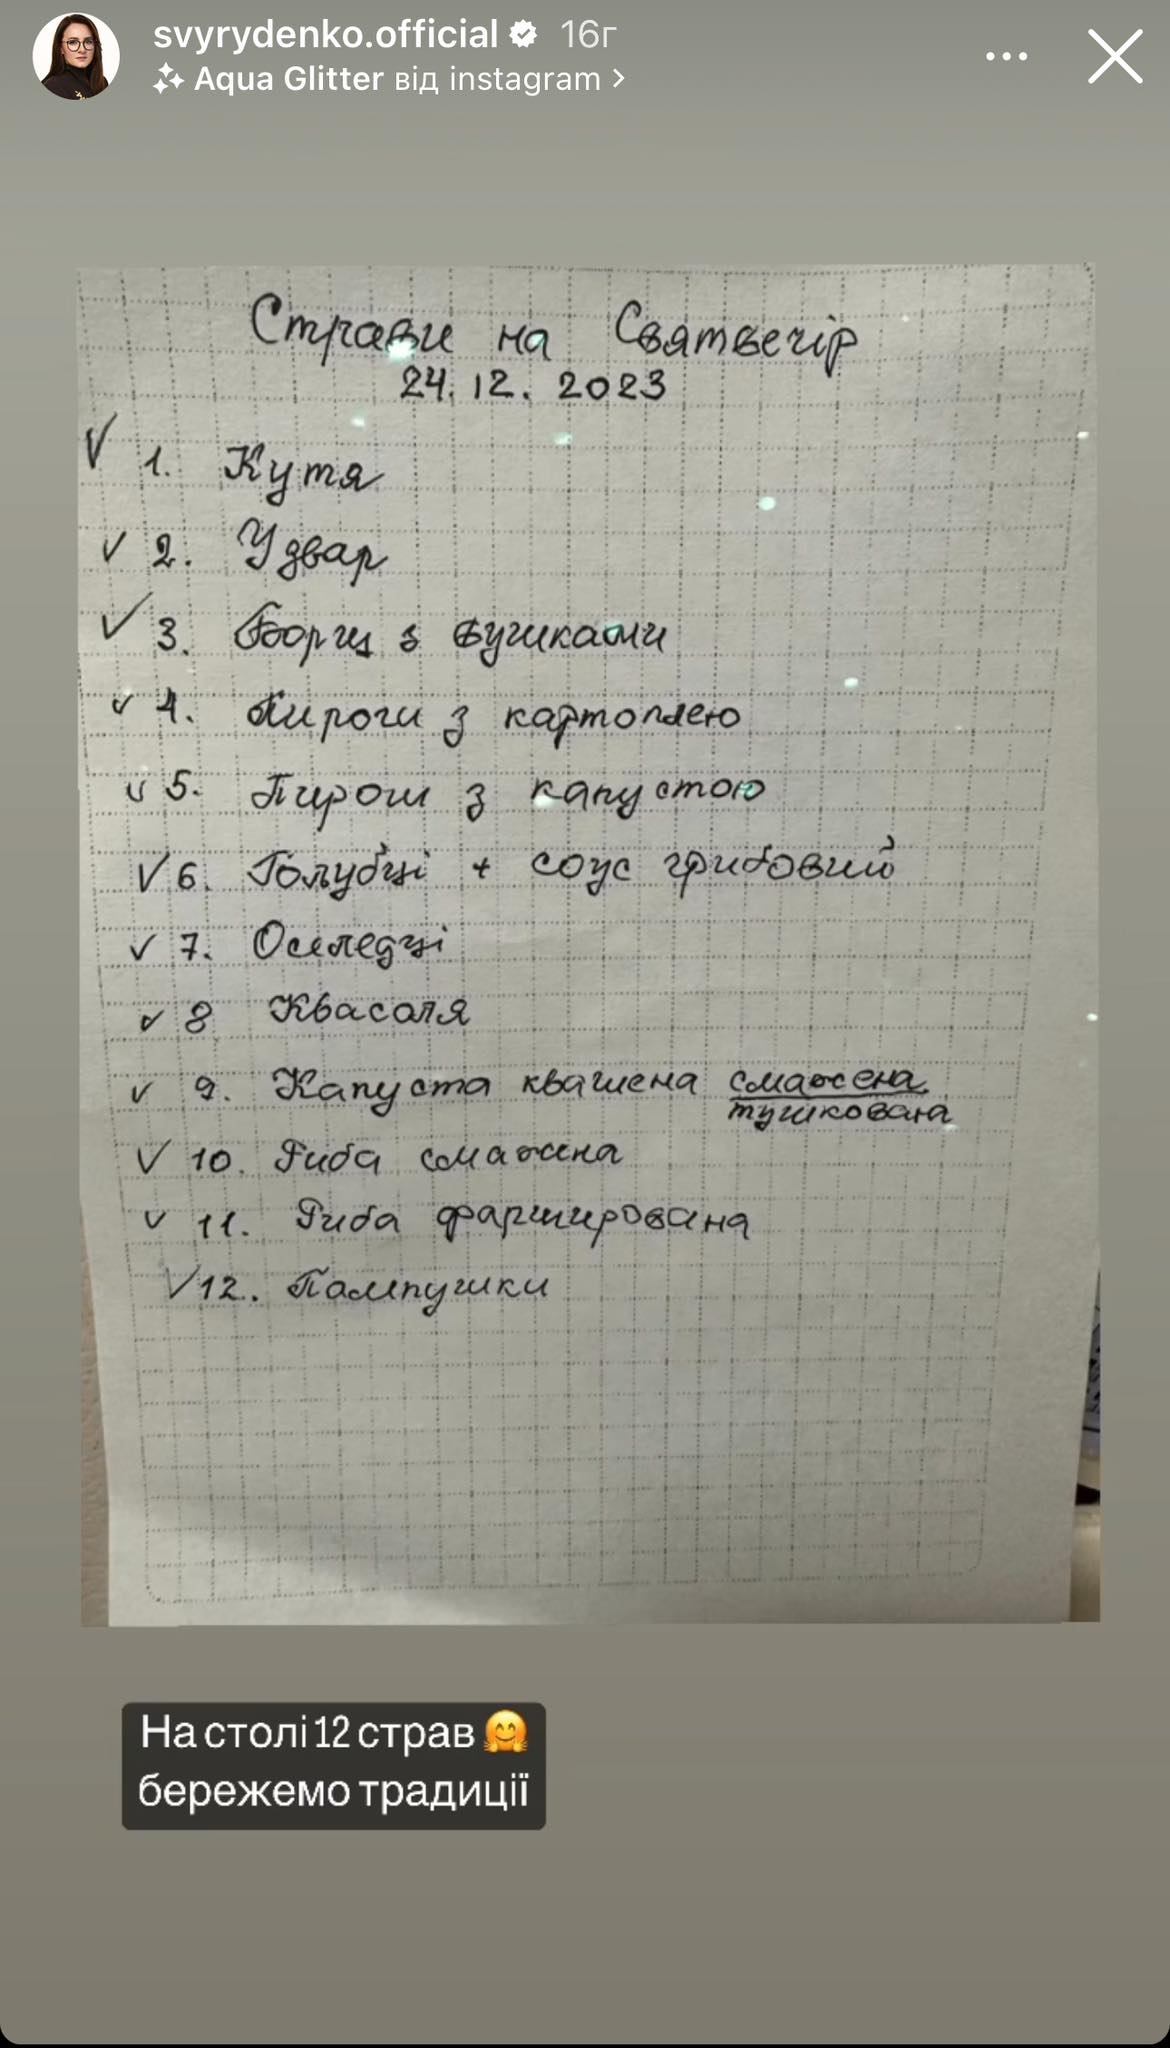 svyrydenko.official 16г
Aqua Glitter від instagram >
Страви на Святвечір
24.12.2023
✓ 1. Кутя
✓ 2. Узвар
✓ 3. Борщ з вушками
✓ 4. Пироги з картоплею
✓ 5. Пироги з капустою
✓ 6. Голубці + соус грибовий
✓ 7. Оселедці
✓ 8 Квасоля
✓ 9. Капуста квашена смажена
тушкована
✓ 10. Риба смажена
✓ 11. Риба фарширована
✓ 12. Пампушки
На столі 12 страв 🤗
бережемо традиції